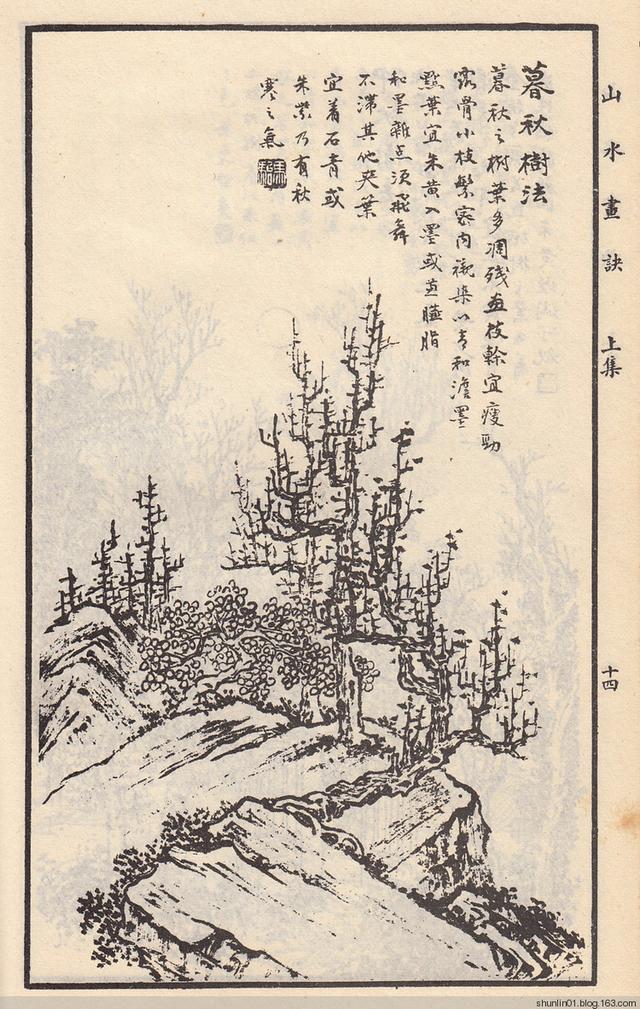 山水畫訣 上集 十四
暮秋樹法
暮秋之樹葉多凋殘画枝幹宜瘦勁
露骨小枝繁密內襯染以青和澹墨
點葉宜朱黃入墨或並臙脂
和墨雜点須飛舞
不滯其他夾葉
宜着石青或
朱紫乃有秋
寒之氣
shunlin01.blog.163.com